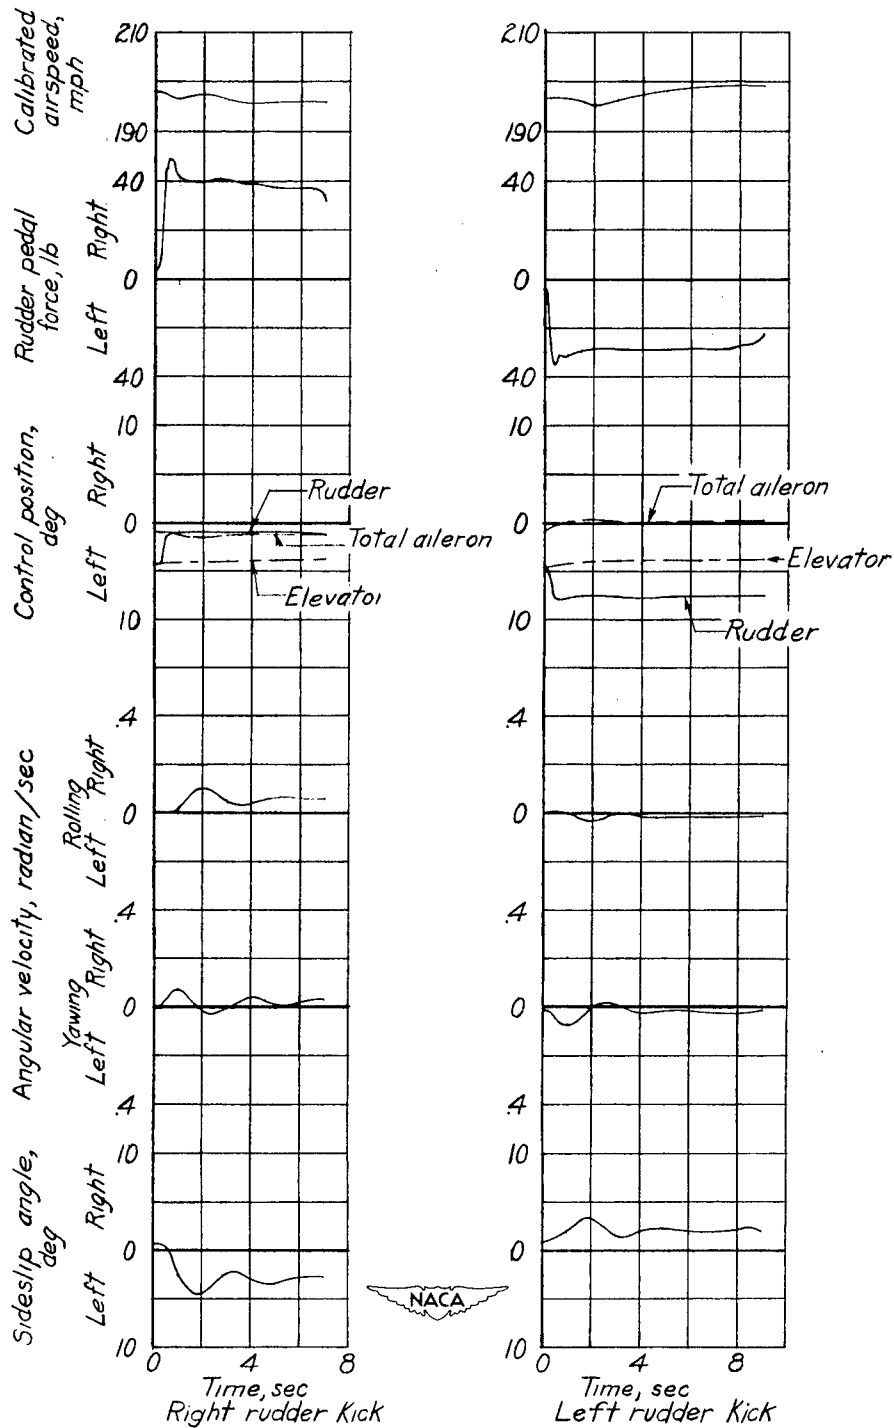 Calibrated
airspeed,
mph
210
190
Rudder pedal
force, lb
Left Right
40
0
40
Control position,
deg
Left Right
10
0
10
Rudder
Total aileron
Elevator
Angular velocity, radian/sec
Rolling
Left Right
.4
0
Yawing
Left Right
.4
0
.4
Sideslip angle,
deg
Left Right
10
0
10
0 4 8
Time, sec
Right rudder Kick
210
190
40
0
40
10
0
10
Total aileron
Elevator
Rudder
.4
0
.4
0
.4
10
0
10
0 4 8
Time, sec
Left rudder Kick
NACA